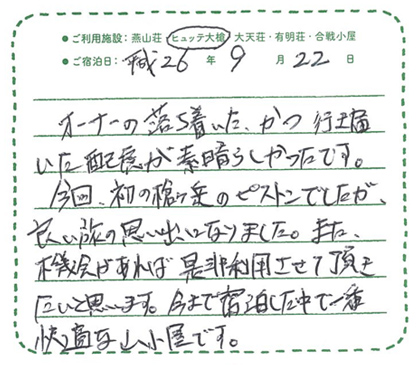 ●ご利用施設：燕山荘 ヒュッテ大槍 大天荘・有明荘・合戦小屋
●ご宿泊日：平成26年9月22日
オーナーの落ち着いた、かつ行き届
いた配慮が素晴らしかったです。
今回、初の槍ヶ岳のピストンでしたが、
良い旅の思い出になりました。また、
機会があれば是非利用させて頂き
たいと思います。今まで宿泊した中で一番
快適な山小屋です。